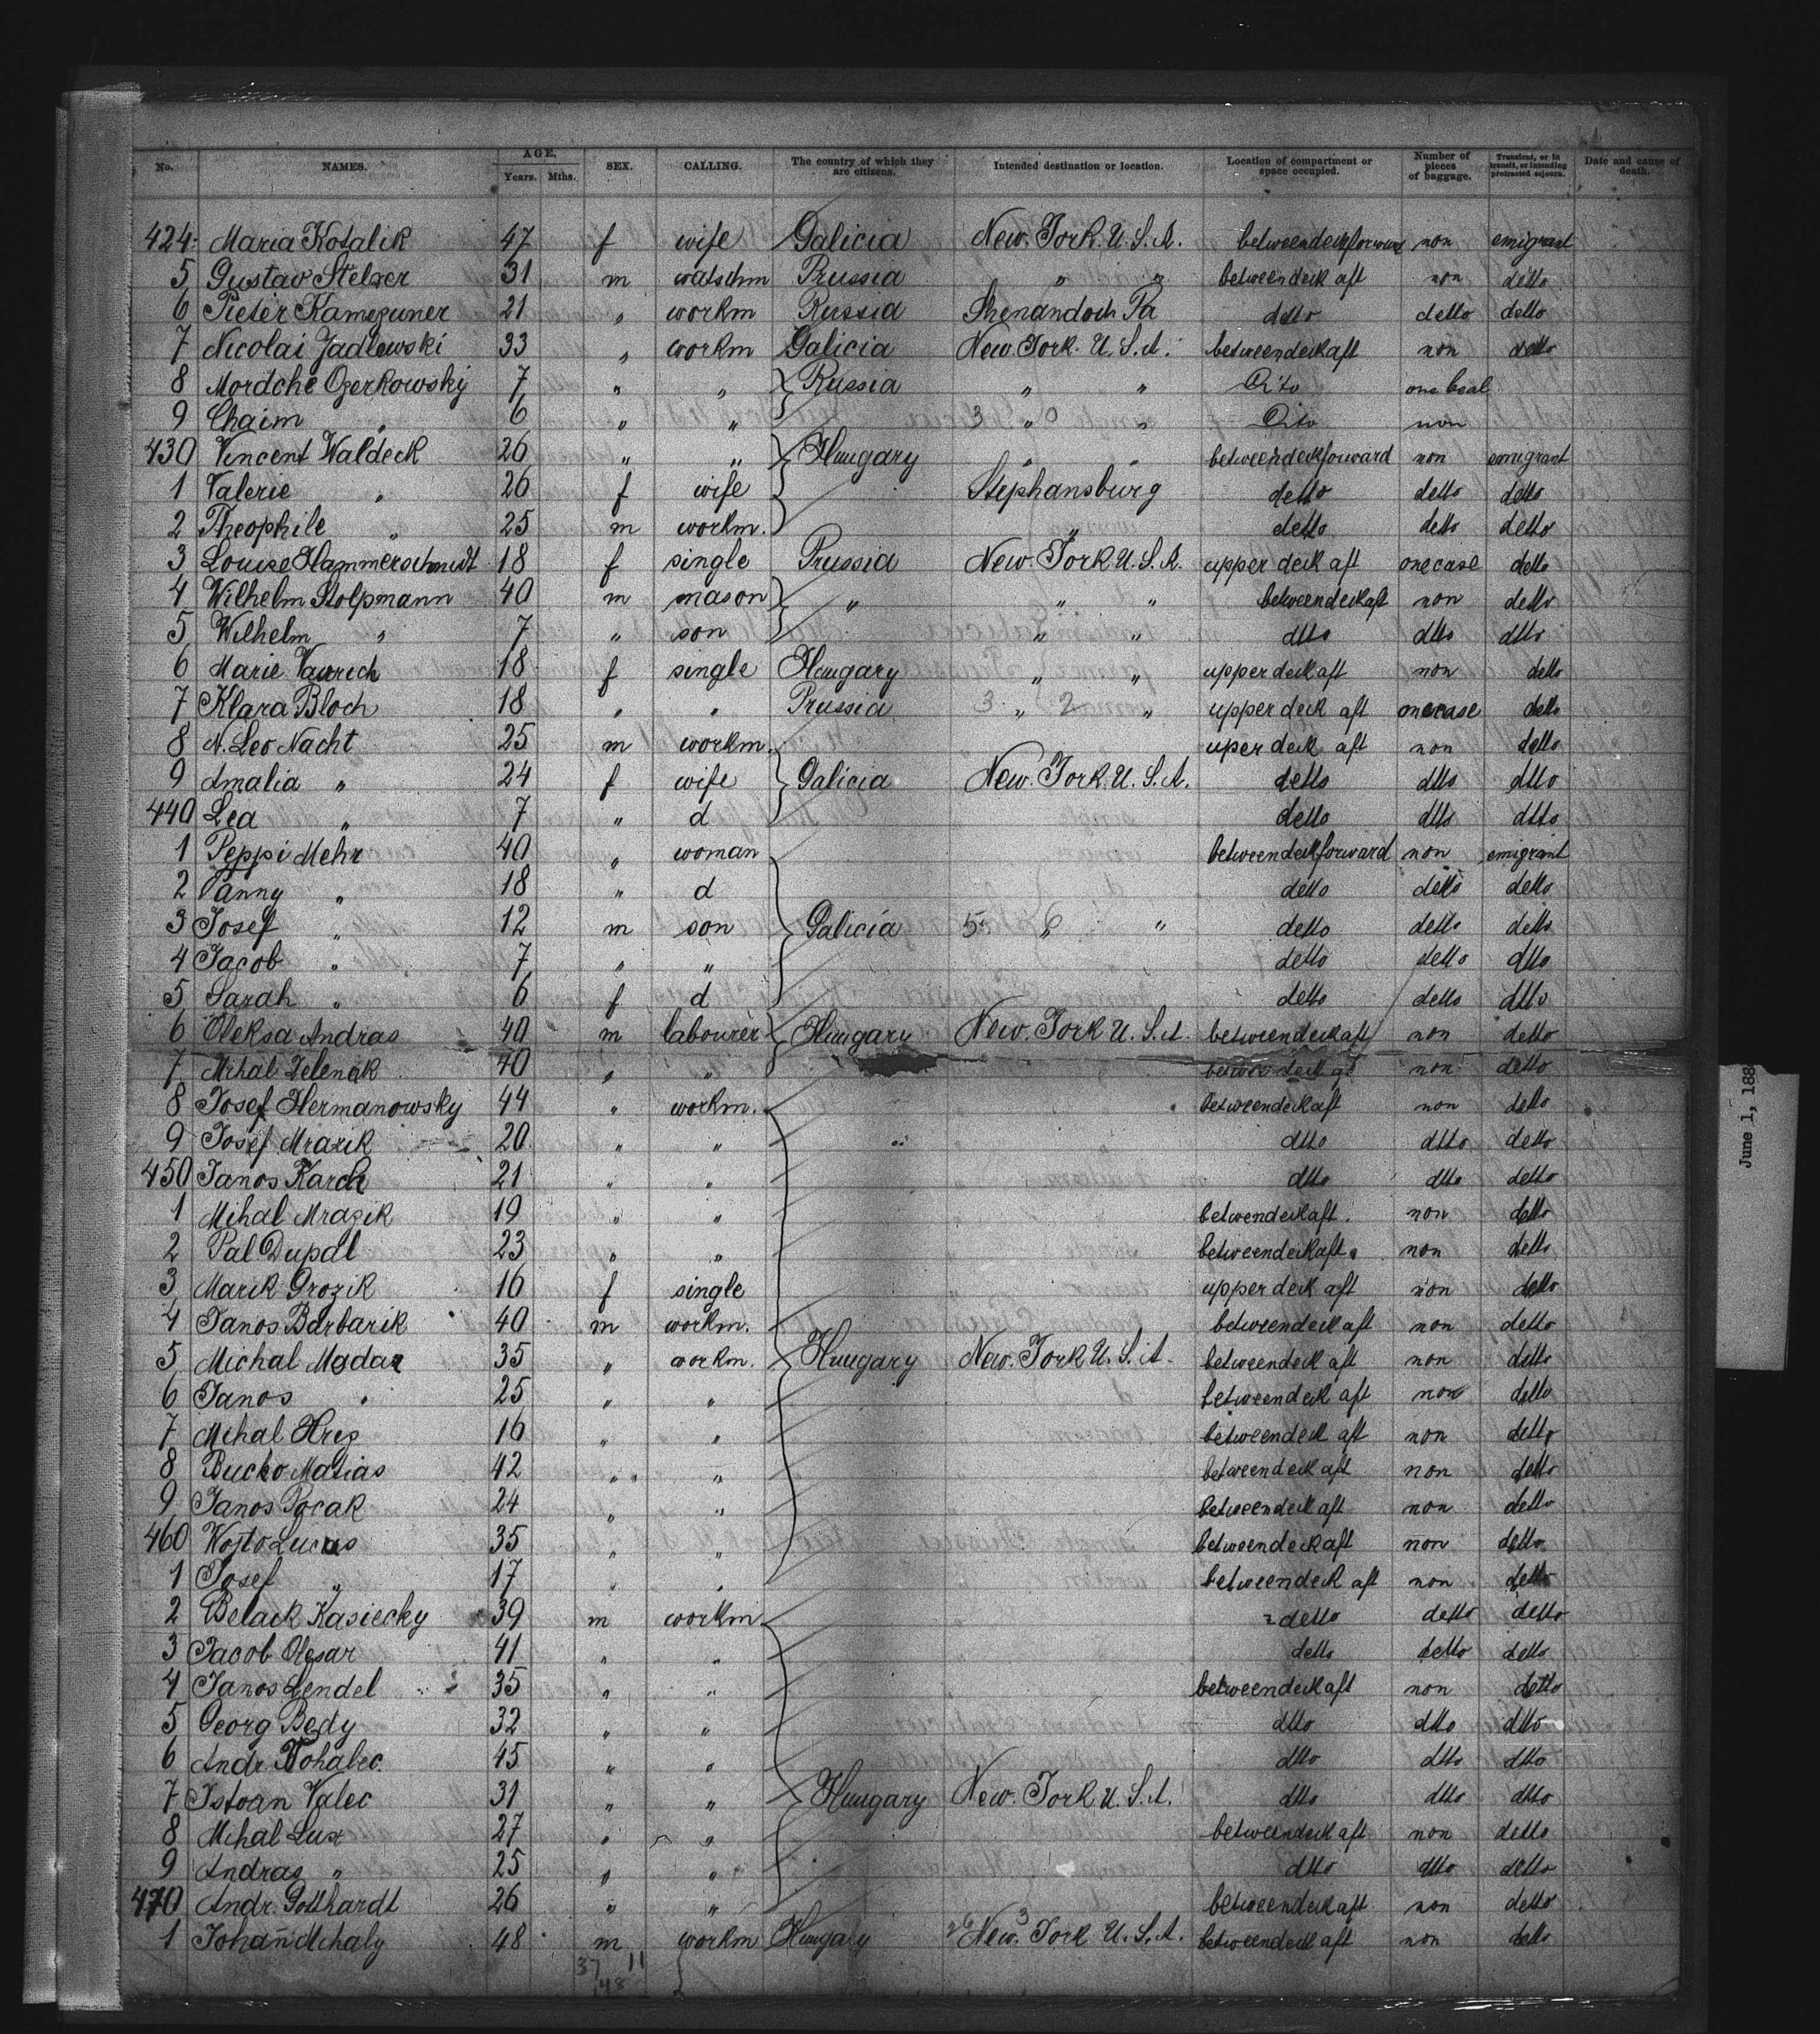 No. NAMES. AGE. Years. Mths. SEX. CALLING. The country of which they are citizens. Intended destination or location. Location of compartment or space occupied. Number of pieces of baggage. Transient, or in transit, or intending protracted sojourn. Date and cause of death.
424 Maria Kotalik 47 f wife Galicia New. York. U. S. A. betweendeckforward non emigrant
5 Gustav Stelzer 31 m watschm Prussia " " betweendeck aft non detto
6 Pieter Kamezuner 21 " workm Russia Shenandoch Pa detto detto detto
7 Nicolai Jadlowski 33 " workm Galicia New. York. U. S. A. betweendeckaft non detto
8 Mordche Ozerkowski 7 " " Russia " " Dito one beal
9 Chaim " 6 " " 3 " 0 " Dito non
430 Vincent Waldeck 26 " " Hungary " " betweendeckforward non emigrant
1 Valerie " 26 f wife Stephansburg detto detto detto
2 Theophile " 25 m workm. " detto detto detto
3 Louise Hammerschmidt 18 f single Prussia New. York U. S. A. upper deck aft onecase detto
4 Wilhelm Stolpmann 40 m mason " " " betweendeckaft non detto
5 Wilhelm " 7 " son " " dtto dtto dtto
6 Marie Vavrech 18 f single Hungary " " upperdeckaft non detto
7 Klara Bloch 18 " " Prussia 3 " 2 " upperdeck aft onecase detto
8 N. Leo Nacht 25 m workm. uper deck aft non detto
9 Amalia " 24 f wife Galicia New. York. U. S. A. detto dtto dtto
440 Lea " 7 " d detto dtto dtto
1 Peppi Mehr 40 " woman betweendeckforward non emigrant
2 Fanny " 18 " d detto detto detto
3 Josef " 12 m son Galicia 5 " 6 " detto detto detto
4 Jacob " 7 " " detto detto dtto
5 Sarah " 6 f d detto detto dtto
6 Oleksa Andras 40 m labourer Hungary New. York U. S. A. betweendeckaft non detto
7 Mihal Zelenak 40 " " non detto
8 Josef Hermanowsky 44 " workm. betweendeckaft non detto
9 Josef Mrazik 20 " " dtto dtto detto
450 Janos Karch 21 " " dtto dtto detto
1 Mihal Mrazik 19 " " betwendeckaft. non detto
2 Pal Dupal 23 " " betweendeckaft non detto
3 Marik Grozik 16 f single upperdeck aft non detto
4 Janos Barbarik 40 m workm. betweendeck aft non detto
5 Michal Madar 35 " workm. Hungary New. York U. S. A. betweendeck aft non detto
6 Janos " 25 " " betweendeck aft non detto
7 Mihal Hrez 16 " " betweendeck aft non detto
8 Bucko Matias 42 " " betweendeck aft non detto
9 Janos Pocak 24 " " betweendeck aft non detto
460 Wojto Lucas 35 " " betweendeckaft non detto
1 Josef " 17 " " betweendeck aft non detto
2 Belack Kasiecky 39 m workm detto detto detto
3 Jacob Olesar 41 " " detto detto detto
4 Janos Lendel 35 " " betweendeckaft non detto
5 Georg Bedy 32 " " dtto dtto dtto
6 Andr. Wohalec 45 " " dtto dtto dtto
7 Istoan Valec 31 " " Hungary New. York U. S. A. dtto dtto dtto
8 Mihal Lux 27 " " betweendeck aft non detto
9 Andras " 25 " " dtto dtto detto
470 Andr. Gotthardt 26 " " betweendeckaft non detto
1 Johan Mihaly 48 m workm Hungaly 26 New. 3 York U. S. A. betweendeck aft non detto
37 11
48
June 1, 188